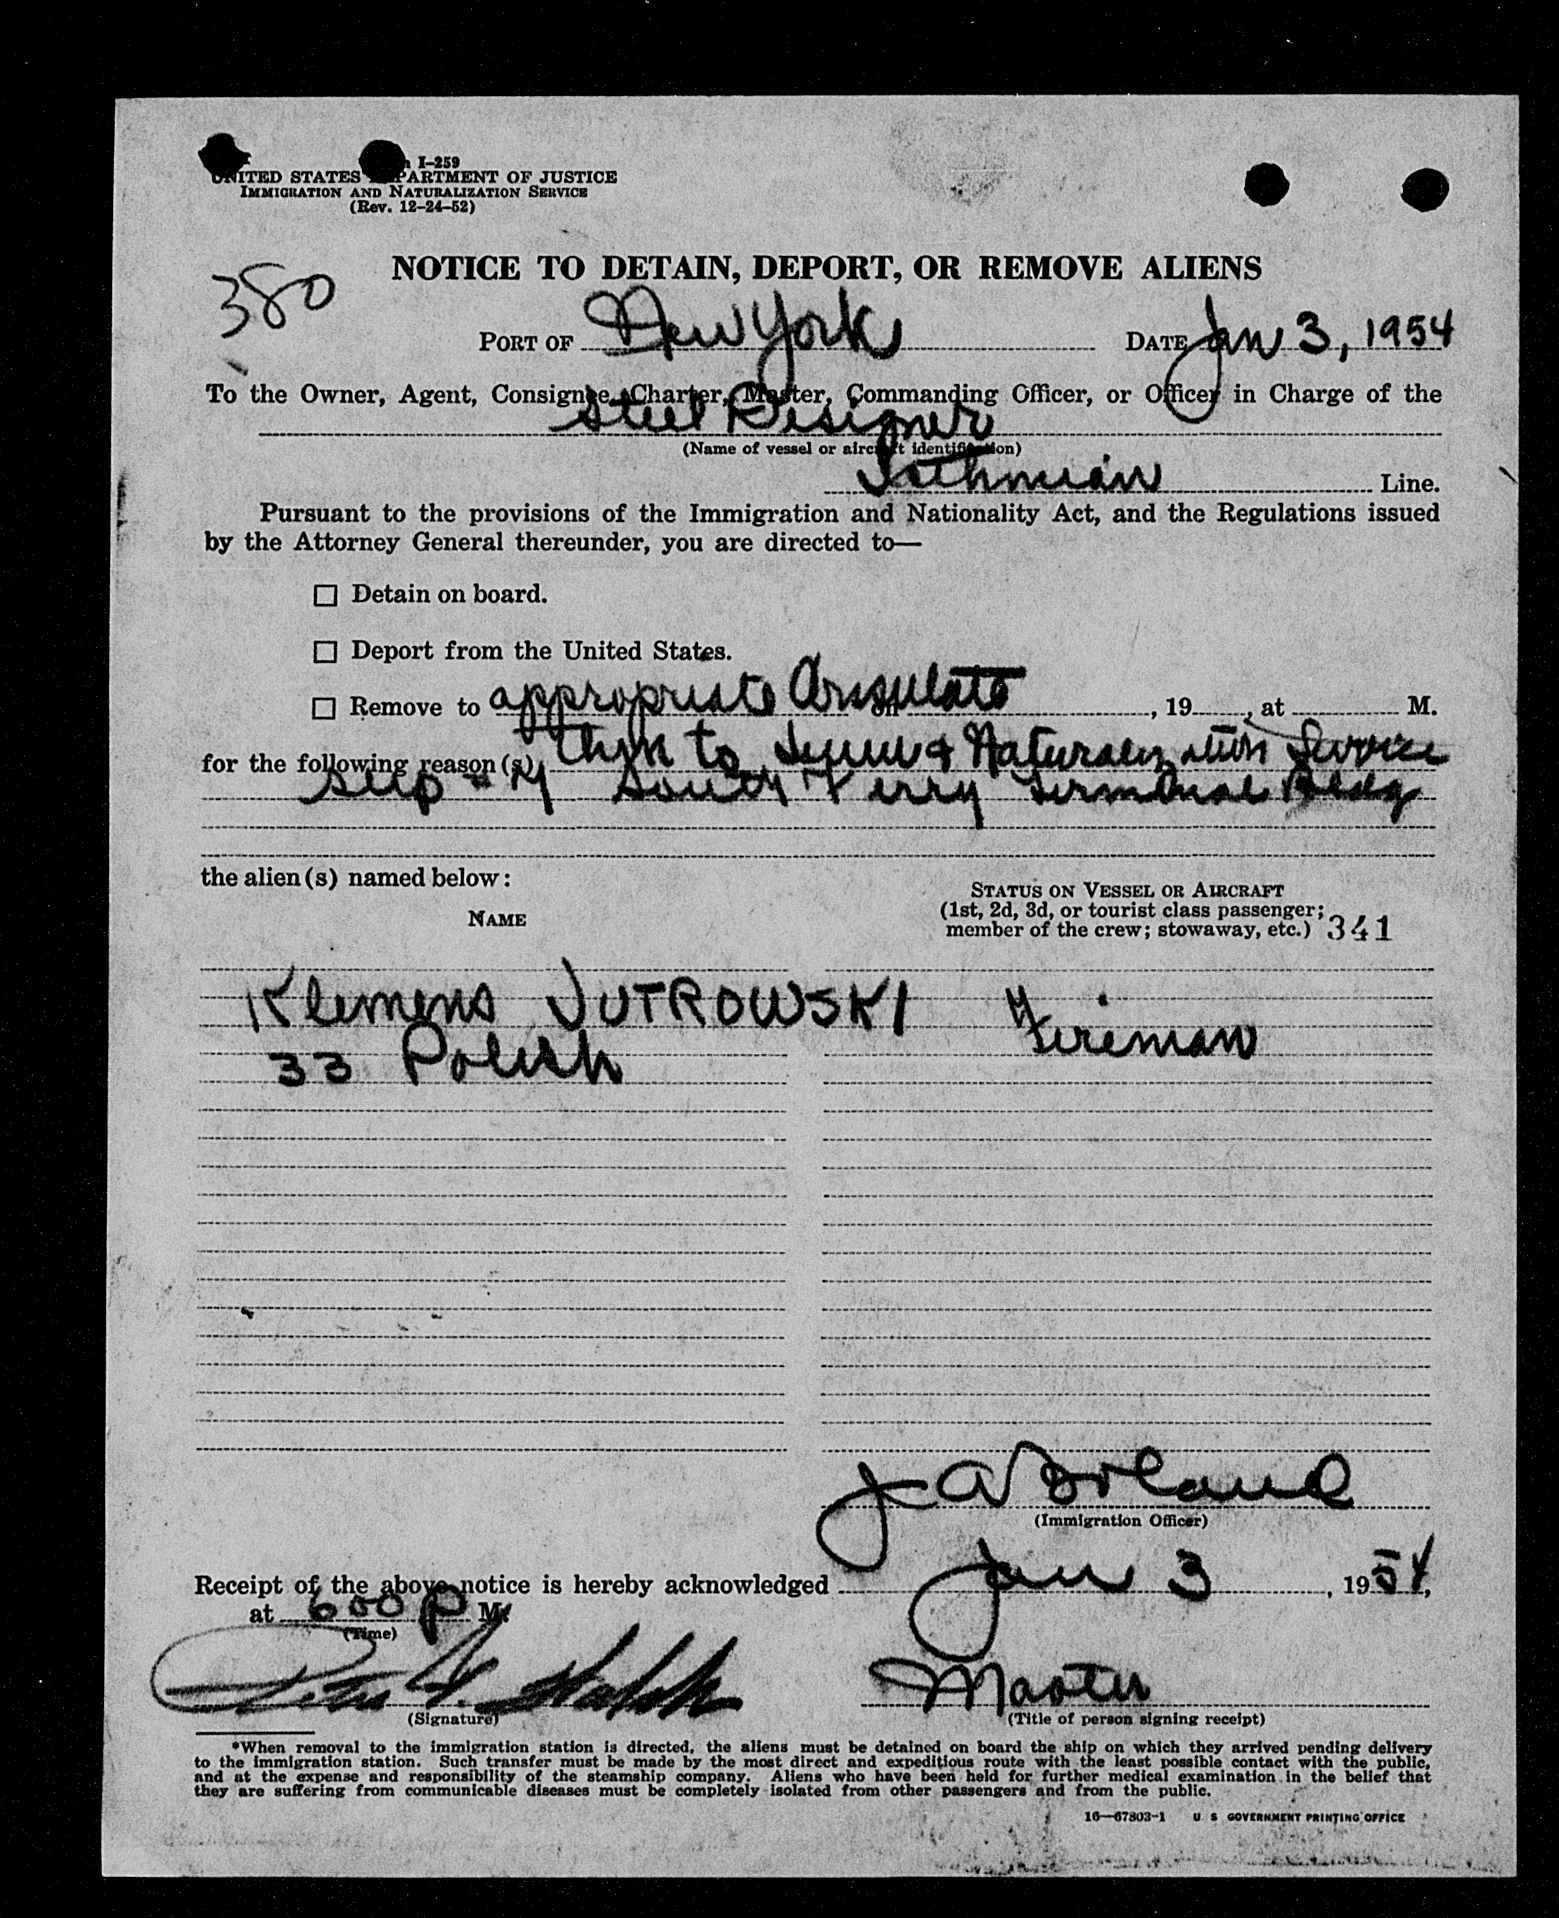 I-259
UNITED STATES DEPARTMENT OF JUSTICE
IMMIGRATION AND NATURALIZATION SERVICE
(Rev. 12-24-52)
380
NOTICE TO DETAIN, DEPORT, OR REMOVE ALIENS
PORT OF New York DATE Jan 3, 1954
To the Owner, Agent, Consignee, Charter, Master, Commanding Officer, or Officer in Charge of the
Steel Designer
(Name of vessel or aircraft identification)
Isthmian Line.
Pursuant to the provisions of the Immigration and Nationality Act, and the Regulations issued
by the Attorney General thereunder, you are directed to—
☐ Detain on board.
☐ Deport from the United States.
☐ Remove to appropriate Consulate on , 19 , at M.
for the following reason(s) then to & Naturalization Service
South Ferry Terminal Bldg
the alien(s) named below:
STATUS ON VESSEL OR AIRCRAFT
NAME
(1st, 2d, 3d, or tourist class passenger;
member of the crew; stowaway, etc.) 341
Klemens JUTROWSKI Fireman
33 Polish
J A Boland
(Immigration Officer)
Receipt of the above notice is hereby acknowledged Jan 3, 1954,
at 600 P M.
(Time)
Peter F. Walsh Master
(Signature) (Title of person signing receipt)
*When removal to the immigration station is directed, the aliens must be detained on board the ship on which they arrived pending delivery
to the immigration station. Such transfer must be made by the most direct and expeditious route with the least possible contact with the public,
and at the expense and responsibility of the steamship company. Aliens who have been held for further medical examination in the belief that
they are suffering from communicable diseases must be completely isolated from other passengers and from the public.
16—67803-1 U S GOVERNMENT PRINTING OFFICE